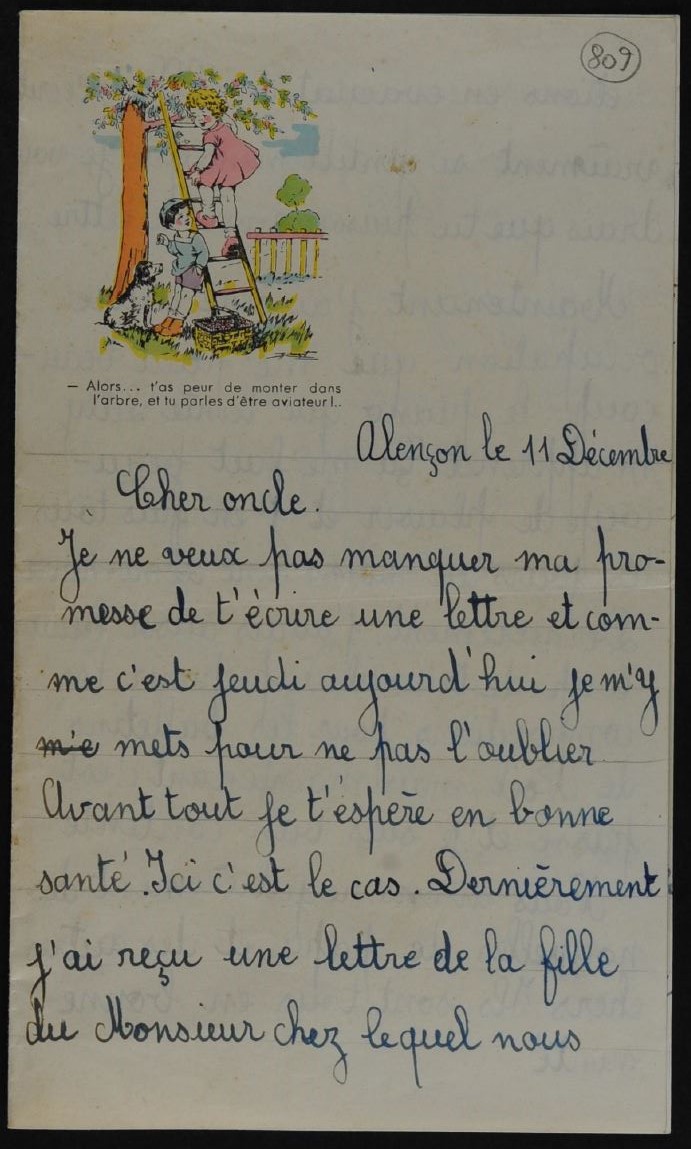 809
— Alors... t'as peur de monter dans
l'arbre, et tu parles d'être aviateur!..
Alençon le 11 Décembre
Cher oncle.
Je ne veux pas manquer ma pro-
messe de t'écrire une lettre et com-
me c'est jeudi aujourd'hui je m'y
m'e mets pour ne pas l'oublier
Avant tout je t'éspère en bonne
santé. Ici c'est le cas. Dernièrement
j'ai reçu une lettre de la fille
du Monsieur chez lequel nous